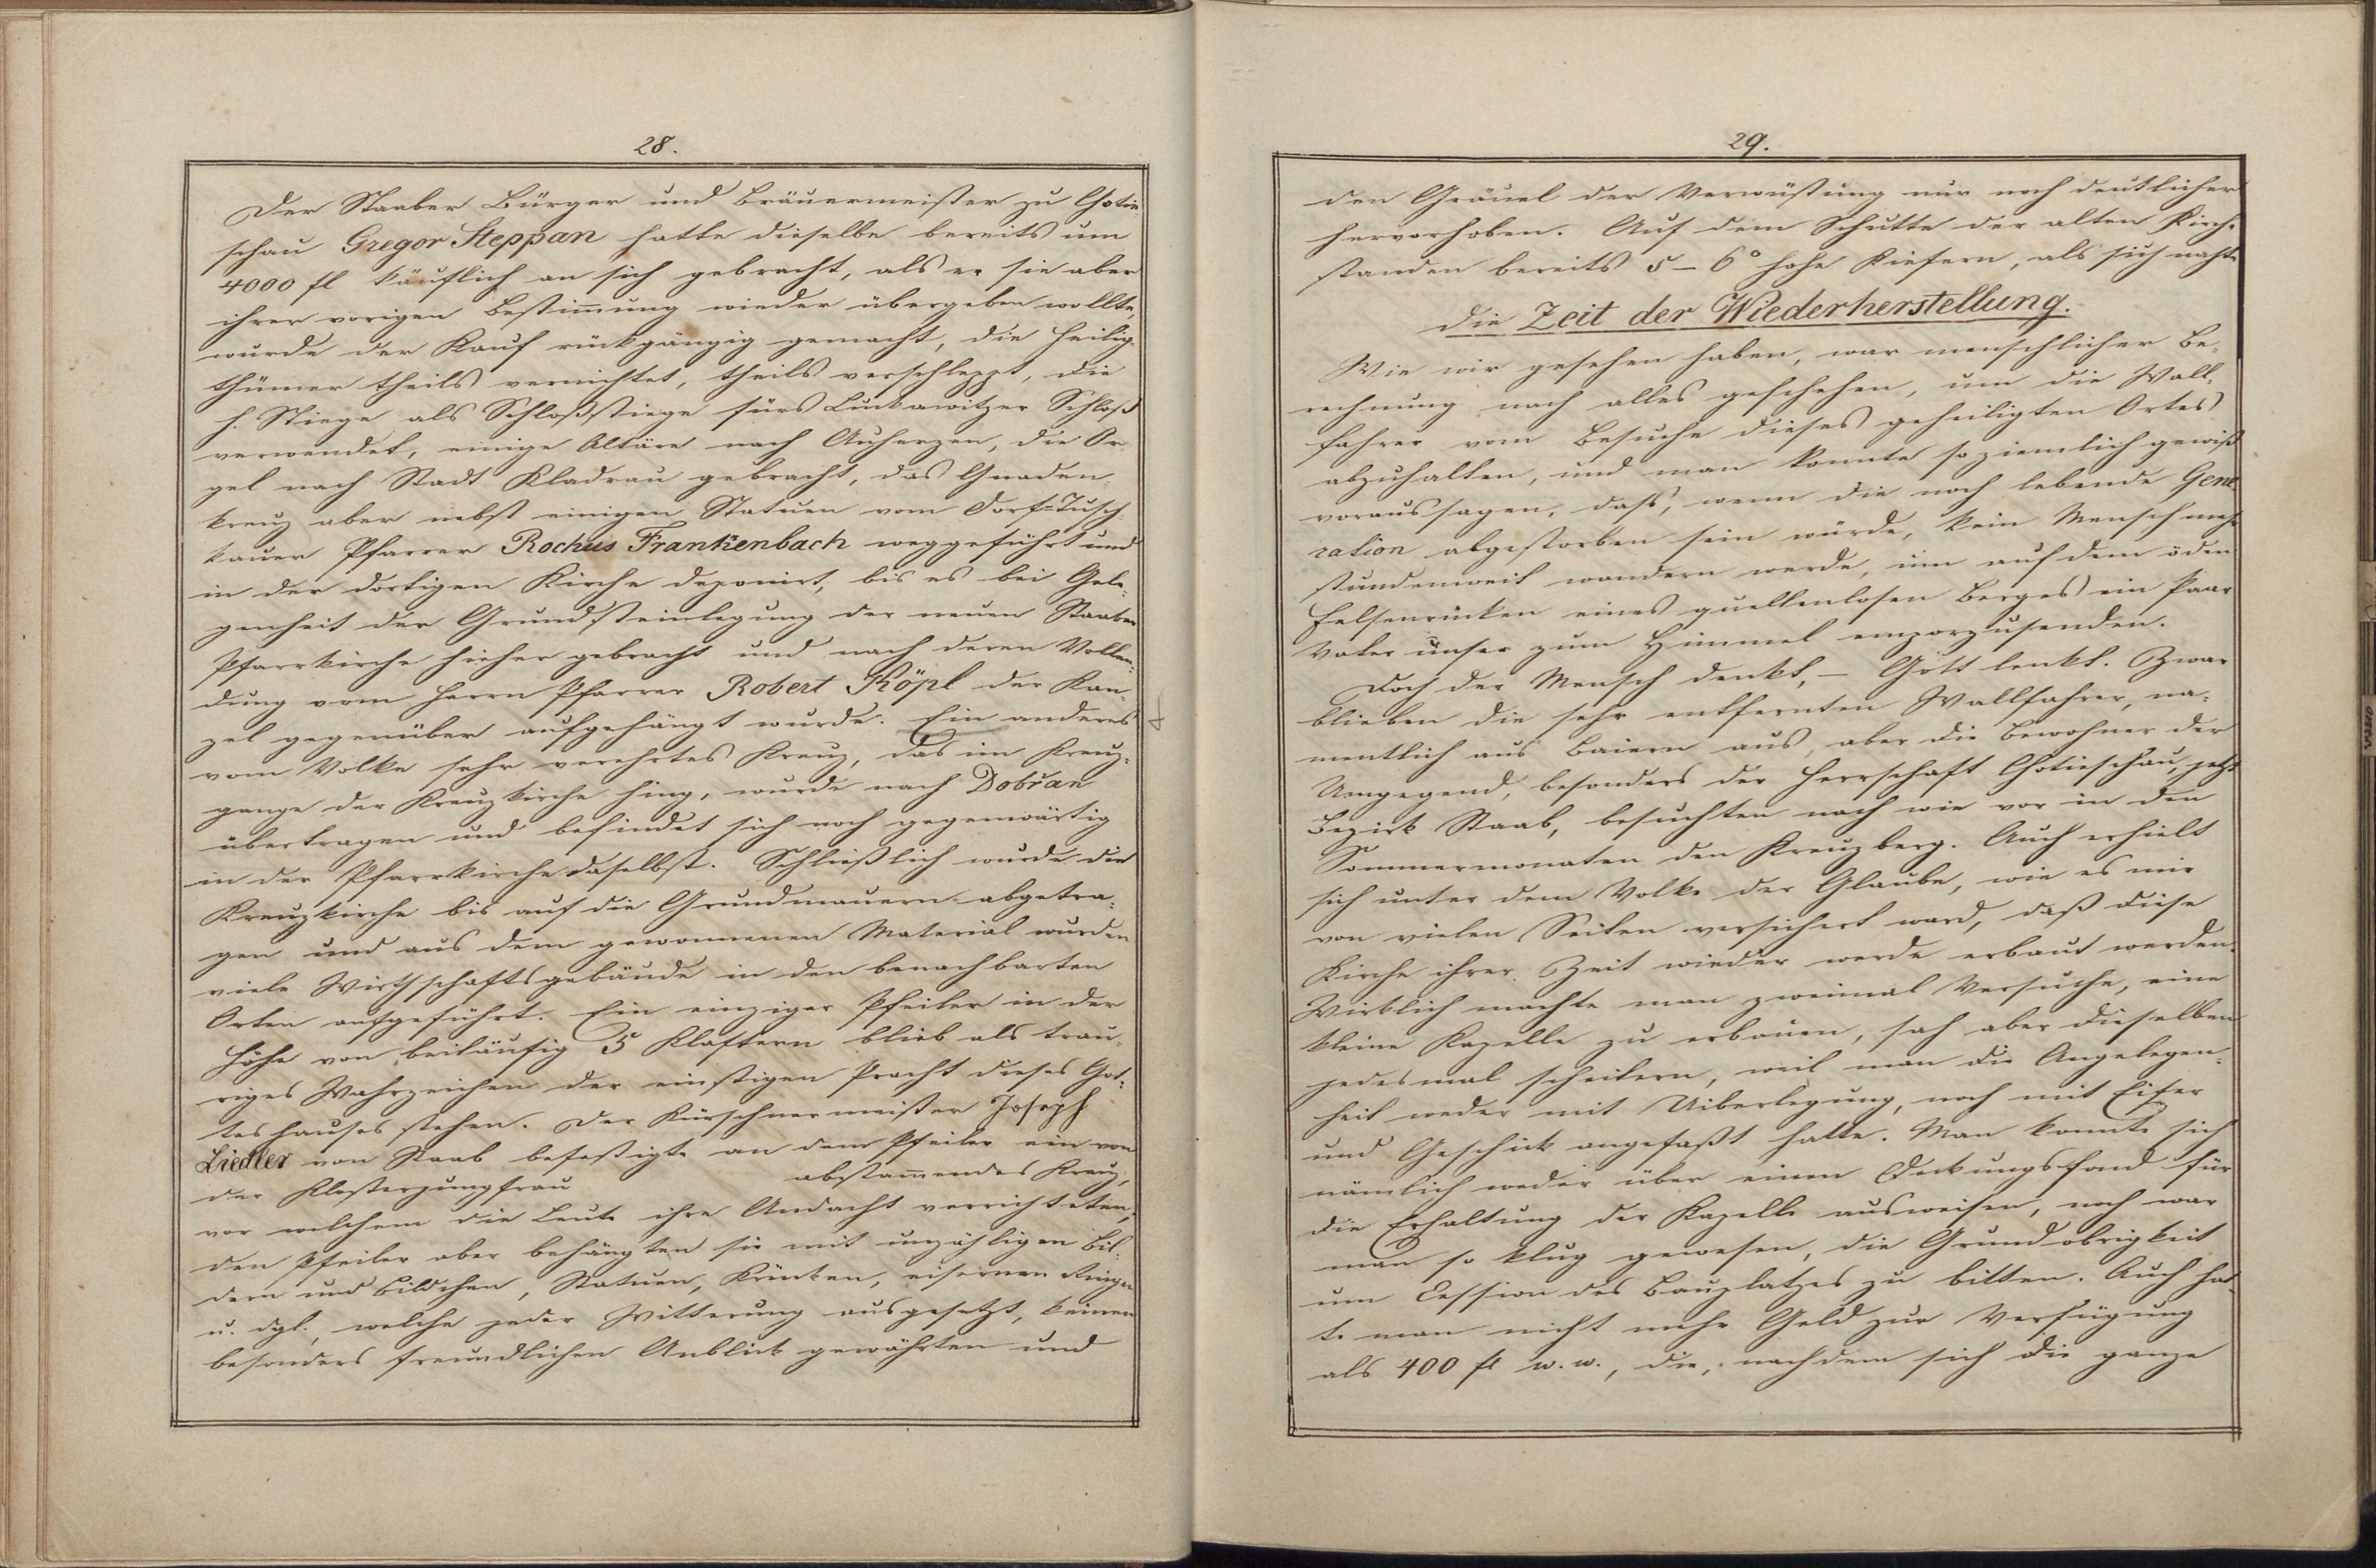 28.
Der Staaber Bürger und Bräuermeister zu Chotie-
schau Gregor Steppan hatte dieselbe bereits um
4000 fl käuflich an sich gebracht, als er sie aber
ihrer vorigen Bestim̄ung wieder übergeben wollte,
wurde der Kauf rückgängig gemacht, die Heilig-
thümer theils vernichtet, theils verschleppt, die
h. Stiege als Schloßstiege fürs Lukawitzer Schloß
verwendet, einige Altäre nach Auherzen, die Or-
gel nach Stadt Kladrau gebracht, das Gnaden-
kreuz aber nebst einigen Statuen vom Dorf-Tusch-
kauer Pfarrer Rochus Frankenbach weggeführt und
in der dortigen Kirche deponirt, bis es bei Gele-
genheit der Grundsteinlegung der neuen Staaber
Pfarrkirche hieher gebracht und nach deren Vollen-
dung vom Herrn Pfarrer Robert Köpl der Kan-
zel gegenüber aufgehängt wurde. Ein anderes
vom Volke sehr verehrtes Kreuz, das im Kreuz-
gange der Kreuzkirche hing, wurde nach Dobřan
übertragen und befindet sich noch gegenwärtig
in der Pfarrkirche daselbst. Schließlich wurde die
Kreuzkirche bis auf die Grundmauern abgetra-
gen und aus dem gewonnenen Material wurden
viele Wirthschaftsgebäude in den benachbarten
Orten aufgeführt. Ein einziger Pfeiler in der
Höhe von beiläufig 5 Klaftern blieb als trau-
riges Wahrzeichen der einstigen Pracht dieses Got-
teshauses stehen. Der Kürschnermeister Joseph
Liedler von Staab befestigte an dem Pfeiler ein von
der Klosterjungfrau abstam̄endes Kreuz,
vor welchem die Leute ihre Andacht verrichteten;
den Pfeiler aber behängten sie mit unzähligen Bil-
dern und Bildchen, Statuen, Krücken, eisernen Ringen
u. dgl., welche jeder Witterung ausgesetzt, keinen
besonders freundlichen Anblick gewährten und
29.
den Gräuel der Verwüstung nur noch deutlicher
hervorhoben. Auf dem Schutte der alten Kirche
standen bereits 5 – 6° hohe Kiefern, als sich nahte
die Zeit der Wiederherstellung.
Wie wir gesehen haben, war menschlicher Be-
rechnung nach alles geschehen, um die Wall-
fahrer vom Besuche dieses geheiligten Ortes
abzuhalten, und man konnte so ziemlich gewiß
voraussagen, dass, wenn die noch lebende Gene-
ration abgestorben sein würde, kein Mensch mehr
stundenweit wandern werde, um auf dem öden
Felsenrücken eines quellenlosen Berges ein Paar
Vater unser zum Himmel emporzusenden.
Doch der Mensch denkt, – Gott lenkt. Zwar
blieben die sehr entfernten Wallfahrer, na-
mentlich aus Baiern aus, aber die Bewohner der
Umgegend, besonders der Herrschaft Chotieschau, jetzt
Bezirk Staab, besuchten nach wie vor in den
Sommermonaten den Kreuzberg. Auch erhielt
sich unter dem Volke der Glaube, wie es mir
von vielen Seiten versichert ward, daß diese
Kirche ihrer Zeit wieder werde erbaut werden.
Wirklich machte man zweimal Versuche, eine
kleine Kapelle zu erbauen, sah aber dieselben
jedesmal scheitern, weil man die Angelegen-
heit weder mit Uiberlegung, noch mit Eifer
und Geschick angefaßt hatte. Man konnte sich
nämlich weder über einen Deckungsfond für
die Erhaltung der Kapelle ausweisen, noch war
man so klug gewesen, die Grundobrigkeit
um Cession des Bauplatzes zu bitten. Auch hat-
te man nicht mehr Geld zur Verfügung
als 400 fl w. w., die, nachdem sich die ganze